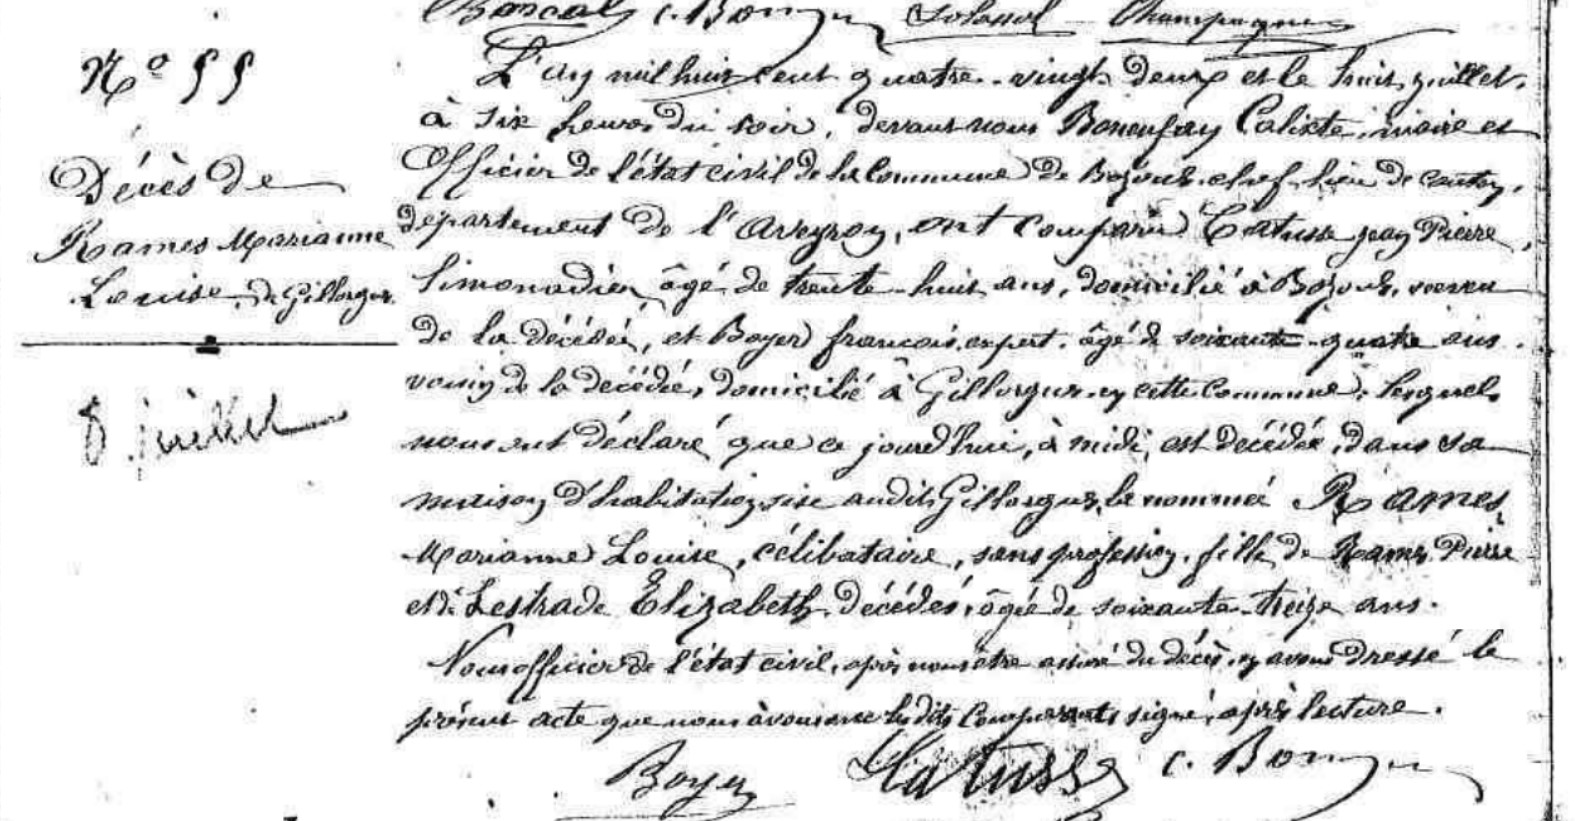 Bancal C. Bon Solassol Champagne
N° 55
Décès de
Rames Marianne
Louise, de Gillorgues.
8 juillet
L'an mil huit cent quatre-vingt deux et le huit juillet,
à six heures du soir, devant nous Calixte, maire et
Officier de l'état civil de la Commune de Bozouls, chef-lieu de canton,
département de l'Aveyron, ont comparu Catusse jean Pierre,
limonadier, âgé de trente-huit ans, domicilié à Bozouls, neveu
de la décédée, et Boyer francois, expert, âgé de soixante-quatre ans,
voisin de la décédée, domicilié à Gillorgues en cette Commune, lesquels
nous ont déclaré que ce jourd'hui, à midi, est décédée, dans sa
maison d'habitation, sise audit Gillorgues, la nommée Rames,
Marianne Louise, célibataire, sans profession, fille de Rames Pierre
et de Lestrade Elizabeth, décédés, âgée de soixante-treize ans.
Nous officier de l'état civil, après nous être assuré du décès, en avons dressé le
présent acte que nous avons avec lesdits Comparants signé, après lecture.
Boyer Catusse C. Bon